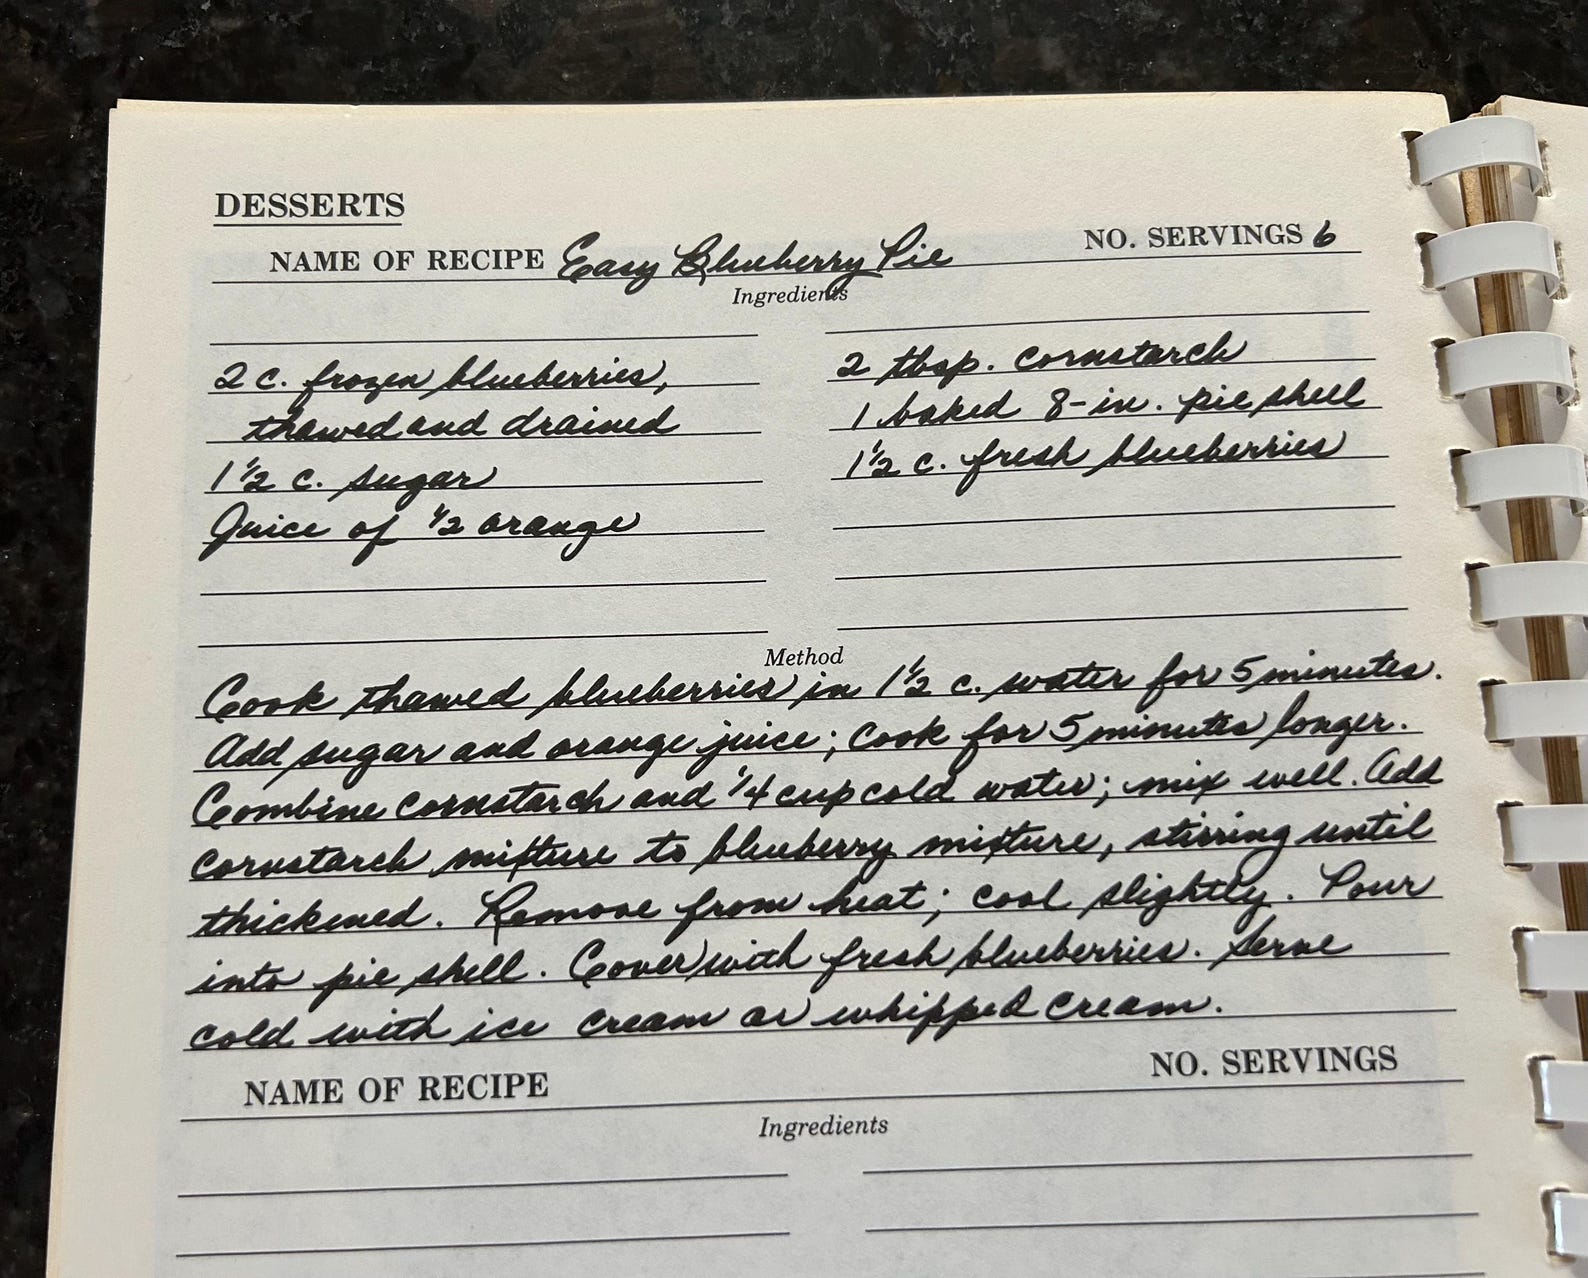 DESSERTS
NAME OF RECIPE Easy Blueberry Pie NO. SERVINGS 6
Ingredients
2 c. frozen blueberries,
thawed and drained
1 1/2 c. sugar
Juice of 1/2 orange
2 tbsp. cornstarch
1 baked 8-in. pie shell
1 1/2 c. fresh blueberries
Method
Cook thawed blueberries in 1 1/2 c. water for 5 minutes.
Add sugar and orange juice; cook for 5 minutes longer.
Combine cornstarch and 1/4 cup cold water; mix well. Add
cornstarch mixture to blueberry mixture, stirring until
thickened. Remove from heat; cool slightly. Pour
into pie shell. Cover with fresh blueberries. Serve
cold with ice cream or whipped cream.
NAME OF RECIPE NO. SERVINGS
Ingredients